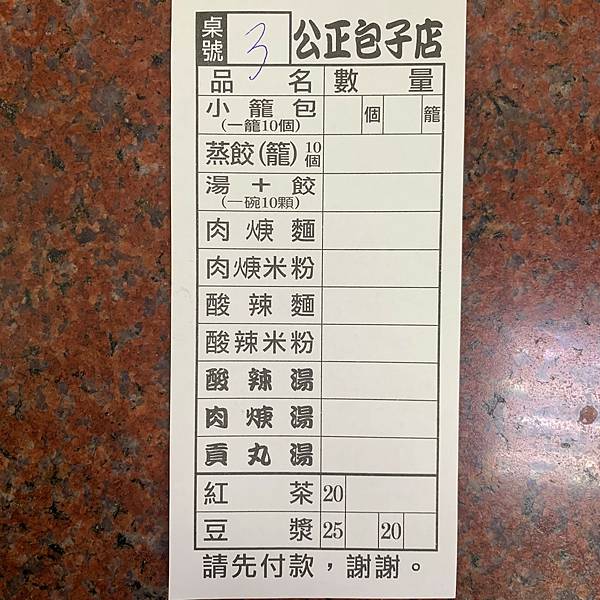 桌號 3 公正包子店
品名 數量
小籠包 個 籠
(一籠10個)
蒸餃(籠) 10個
湯+餃
(一碗10顆)
肉焿麵
肉焿米粉
酸辣麵
酸辣米粉
酸辣湯
肉焿湯
貢丸湯
紅茶 20
豆漿 25 20
請先付款,謝謝。